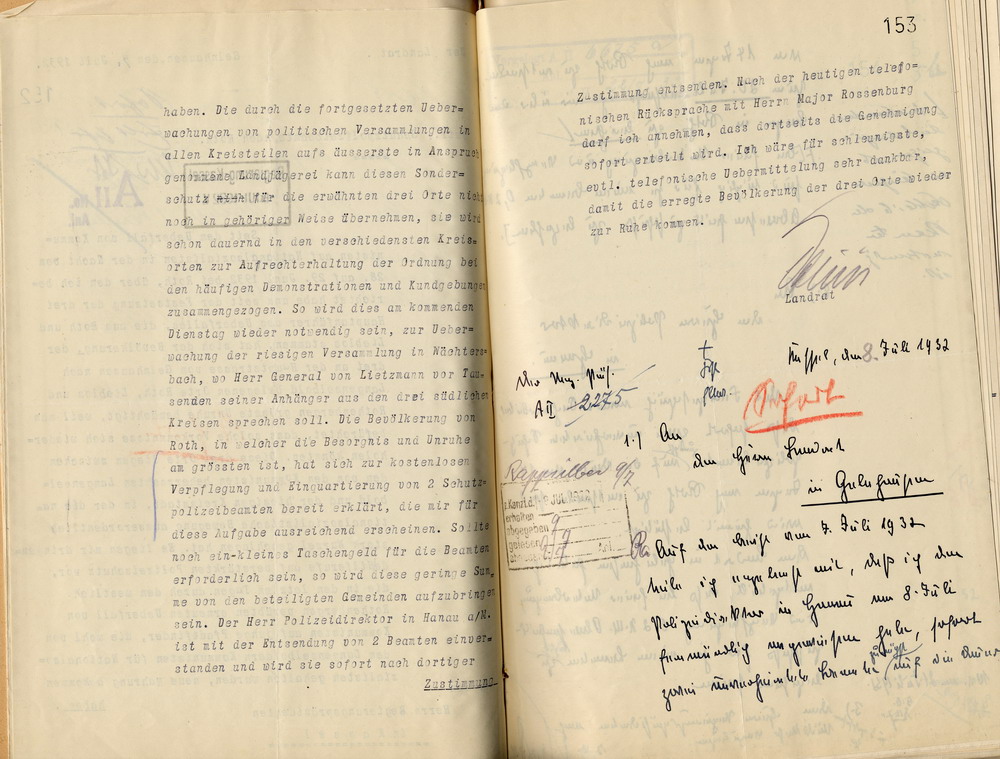 haben. Die durch die fortgesetzten Ueber=
wachungen von politischen Versammlungen in
allen Kreisteilen aufs äusserste in Anspruch
genommene Landjägerei kann diesen Sonder=
schutz für die erwähnten drei Orte nicht
noch in gehöriger Weise übernehmen, sie wird
schon dauernd in den verschiedensten Kreis=
orten zur Aufrechterhaltung der Ordnung bei
den häufigen Demonstrationen und Kundgebungen
zusammengezogen. So wird dies am kommenden
Dienstag wieder notwendig sein, zur Ueber=
wachung der riesigen Versammlung in Wächters=
bach, wo Herr General von Lietzmann vor Tau=
senden seiner Anhänger aus den drei südlichen
Kreisen sprechen soll. Die Bevölkerung von
Roth, in welcher die Besorgnis und Unruhe
am grössten ist, hat sich zur kostenlosen
Verpflegung und Einquartierung von 2 Schutz=
polizeibeamten bereit erklärt, die mir für
diese Aufgabe ausreichend erscheinen. Sollte
noch ein kleines Taschengeld für die Beamten
erforderlich sein, so wird diese geringe Sum=
me von den beteiligten Gemeinden aufzubringen
sein. Der Herr Polizeidirektor in Hanau a/M.
ist mit der Entsendung von 2 Beamten einver=
standen und wird sie sofort nach dortiger
Zustimmung
153
Zustimmung entsenden. Nach der heutigen telefo=
nischen Rücksprache mit Herrn Major Rossenburg
darf ich annehmen, dass dortseits die Genehmigung
sofort erteilt wird. Ich wäre für schleunigste,
evtl. telefonische Uebermittelung sehr dankbar,
damit die erregte Bevölkerung der drei Orte wieder
zur Ruhe kommen.
Landrat
Kassel, den 8. Juli 1932
Der Reg. Präs.
A II 2275
Sofort
1.) An
den Herrn Landrat
in Gelnhausen
Rappsilber 9/7
erhalten
abgegeben 9
gelesen 9/7
Auf den Bericht vom 7. Juli 1932
teile ich ergebenst mit, daß ich den
Polizeidirektor in Hanau am 8. Juli
fernmündlich angewiesen habe, sofort
zwei Beamte auf die Dauer